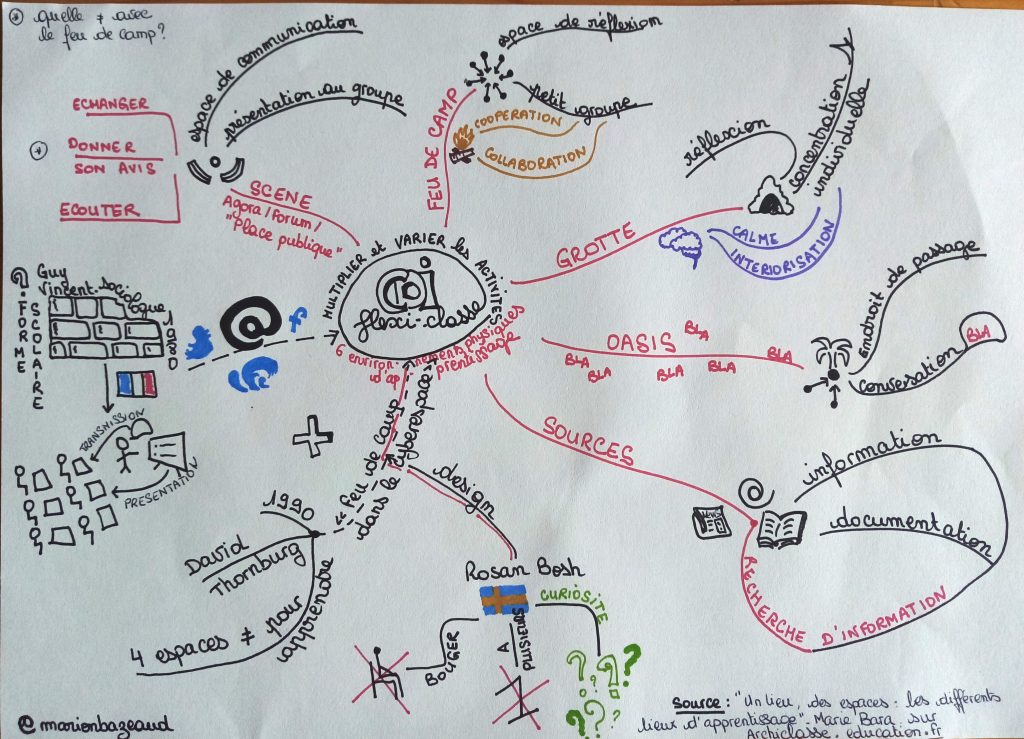 * quelle ≠ avec
le feu de camp?
ECHANGER
DONNER
SON AVIS
ECOUTER
espace de communication
présentation au groupe
SCENE
Agora/Forum/
"Place publique"
FEU DE CAMP
espace de réflexion
petit groupe
COOPERATION
COLLABORATION
GROTTE
réflexion
concentration
individuelle
CALME
INTERIORISATION
MULTIPLIER et VARIER les ACTIVITES
cdi
flexi-classe
6 environ-
nements physiques
d'ap
prentissage
OASIS
BLA
BLA
BLA
BLA
BLA
BLA
Endroit de passage
conversation
BLA
SOURCES
information
documentation
NEWS
RECHERCHE D'INFORMATION
Guy
Vincent. sociologue
1980
FORME
SCOLAIRE
@
f
TRANSMISSION
PRESENTATION
feu de camp
dans le cyberespace
1990
David
Thornburg
4 espaces ≠ pour
apprendre
design
Rosan Bosh
BOUGER
A
PLUSIEURS
CURIOSITE
? ? ? ? ? ?
@marionbazeaud
Source : "Un lieu, des espaces : les différents
lieux d'apprentissage" - Marie Bara sur
Archiclasse.education.fr